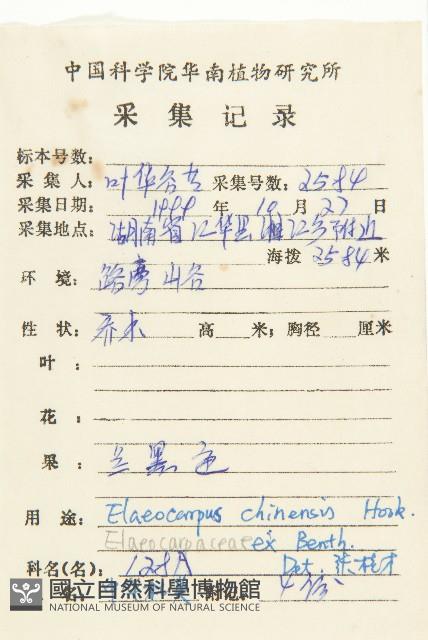 中国科学院华南植物研究所
采集记录
标本号数:
采集人: 叶华谷 采集号数: 2584
采集日期: 1999 年 10 月 27 日
采集地点: 湖南省江华县湘江乡附近
海拨 2584 米
环境: 路旁 山谷
性状: 乔木 高 米; 胸径 厘米
叶:
花:
果: 兰黑色
用途: Elaeocarpus chinensis Hook.
Elaeocarpaceae ex Benth.
科名(名): Det. 张桂才
名: 附记:
國立自然科學博物館
NATIONAL MUSEUM OF NATURAL SCIENCE